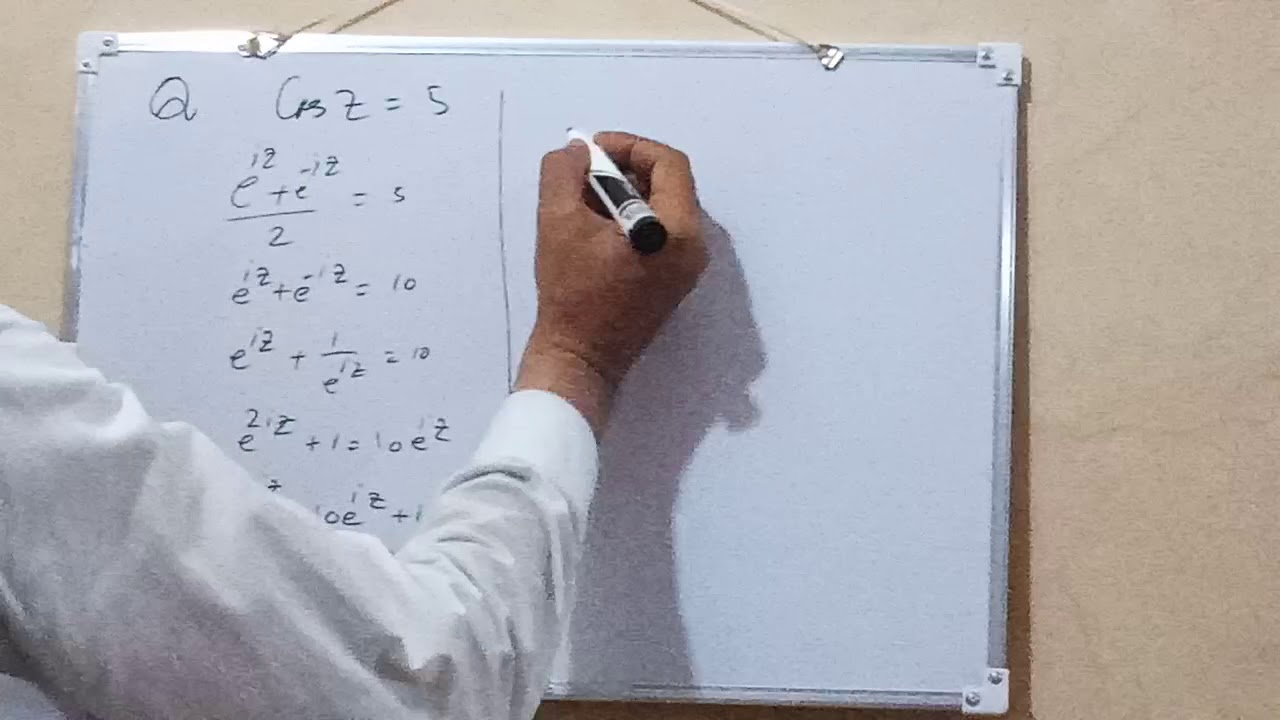 Q Cos z = 5
(e^{iz} + e^{-iz}) / 2 = 5
e^{iz} + e^{-iz} = 10
e^{iz} + 1/e^{iz} = 10
e^{2iz} + 1 = 10e^{iz}
z 10e^{iz} + 1